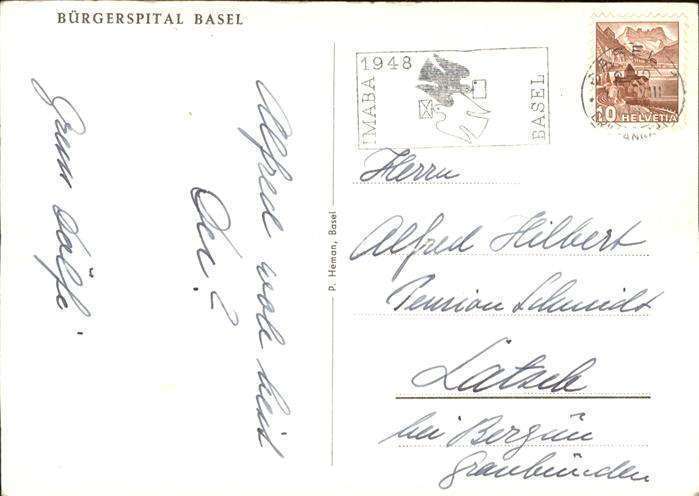 BÜRGERSPITAL BASEL
Alfred wo
Gruss
P. Heman, Basel
IMABA
1948
BASEL
HELVETIA
Herrn
Alfred Hilbert
Pension Schmidt
Latsch
bei Bergün
Graubünden